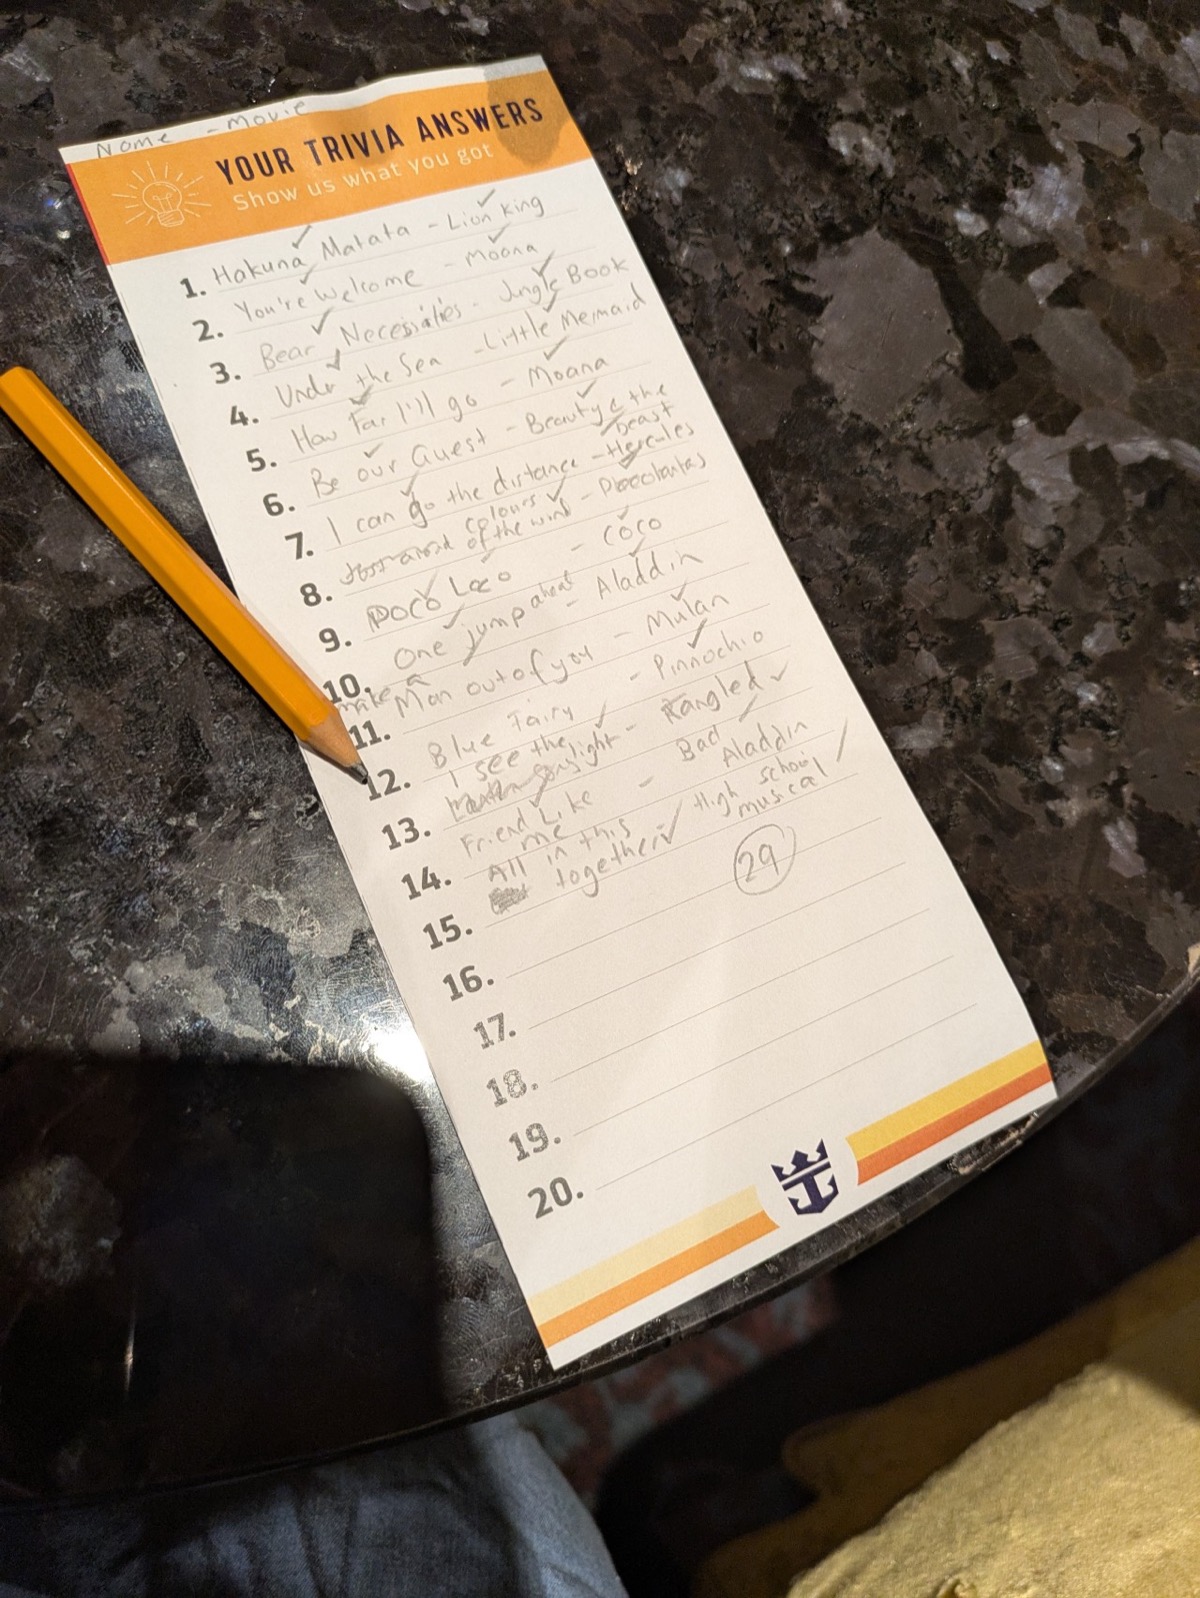 Name - Movie
YOUR TRIVIA ANSWERS
Show us what you got
1. Hakuna Matata - Lion king
2. You're Welcome - Moana
3. Bear Necessities - Jungle Book
4. Under the Sea - Little Mermaid
5. How Far I'll go - Moana
6. Be our Guest - Beauty & the beast
7. I can go the distance - Hercules
8. colours of the wind - Pocolantas
9. Poco Loco - COCO
10. One jump ahead - Aladdin
11. make a Man out of you - Mulan
12. Blue Fairy - Pinnochio
13. I see the light - Tangled
14. Friend Like me - Bad Aladdin
15. All in this together - High school musical
29
16.
17.
18.
19.
20.